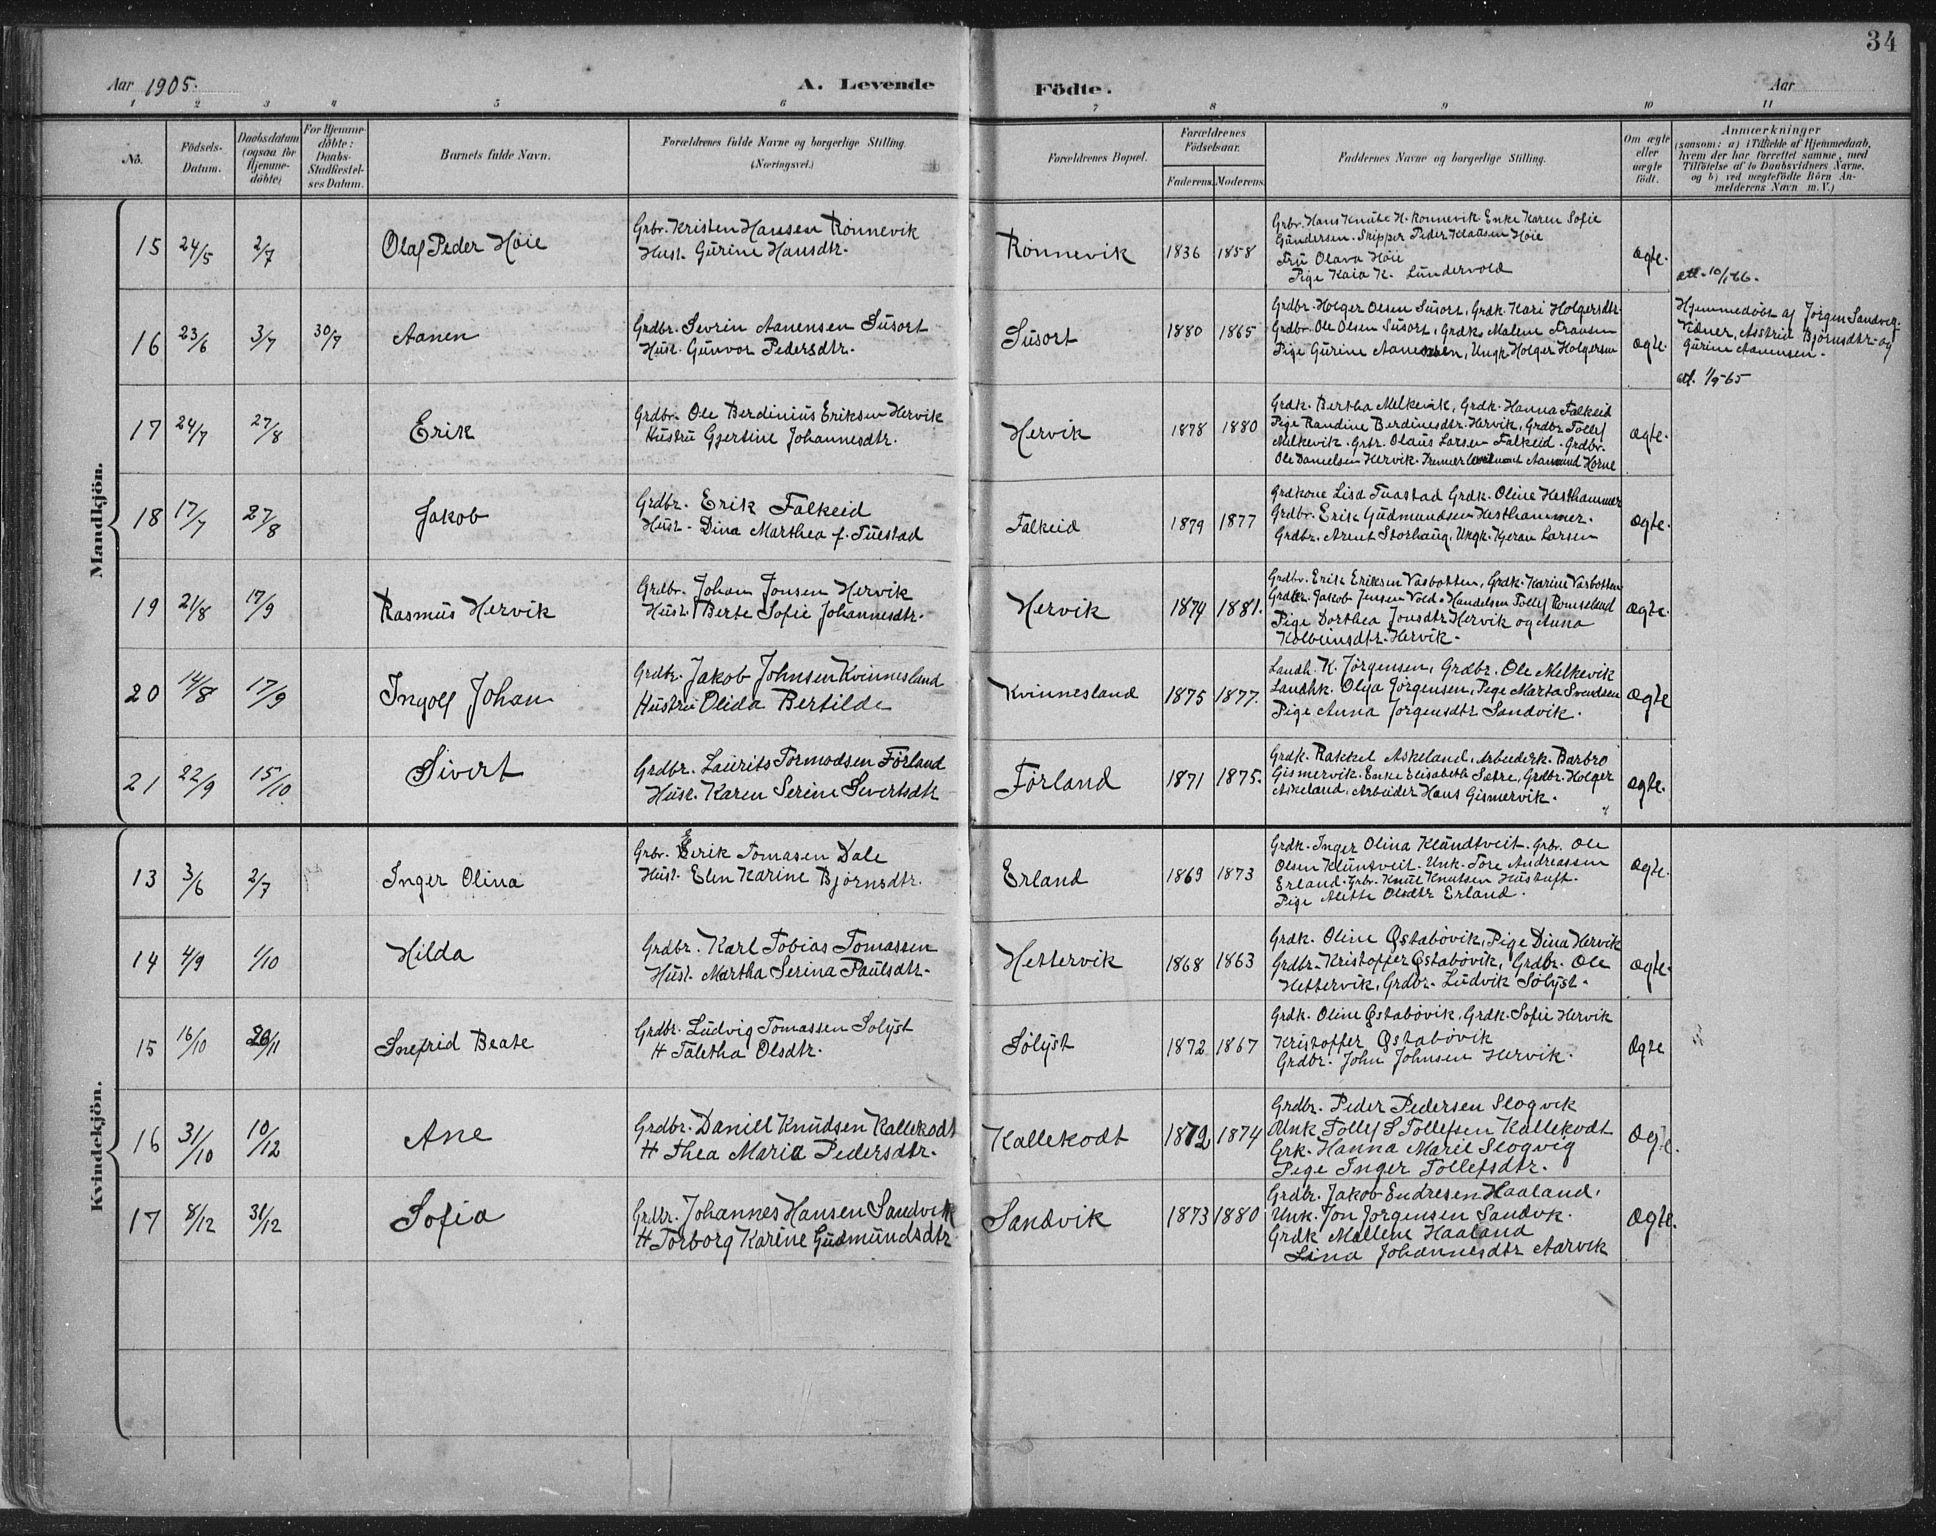 34
Aar 1905. A. Levende Födte. Aar
1 2 3 4 5 6 7 8 9 10 11
No. Födsels-Datum. Daabsdatum (ogsaa for Hjemme-døbte) For Hjemme-döbte: Daabs-Stadfæstel-ses Datum. Barnets fulde Navn. Forældrenes fulde Navne og borgerlige Stilling. (Næringsvei.) Forældrenes Bopæl. Forældrenes Födselsaar. Faderens. Moderens. Faddernes Navne og borgerlige Stilling. Om ægte eller uægte födt. Anmærkninger
(saasom: a) i Tilfælde af Hjemmedaab,
hvem der har forrettet samme, med
Tilföielse af to Daabsvidners Navne,
og b) ved uægtefödte Börn An-
melderens Navn m. V.)
Mandkjön.
15 24/5 2/7 Olaf Peder Höie
Grbr. Kristen Hansen Rønnevik
Hust. Gurine Hansdtr.
Rönnevik 1836 1858
Grbr. Hans Knute H. Rønnevik. Enke Karen Sofie
Gundersen. Skipper Peder Klausen Høie
Fru Olava Høie
Pige Kaia K. Lundervold
ægte.
att. 10/1 66.
16 23/6 3/7 30/7 Aanen
Grdbr. Sevrin Aanensen Susort
Hust. Gunvor Pedersdtr.
Susort 1880 1865
Grdbr. Holger Olsen Susort, Grdk. Kari Holgersdtr.
Grdbr. Ole Olsen Susort, Grdk. Malene Fransen
Pige Gurine Aanensen, Ungk. Holger Holgersen
ægte.
Hjemmedøbt af Jørgen Sandvig.
Vidner, Asstrid Bjørnsdtr. og
Gurine Aanensen.
att. 1/9-65
17 24/7 27/8 Erik
Grdbr. Ole Berdinius Eriksen Hervik
Hustru Gjertine Johannesdtr.
Hervik 1878 1880
Grdk. Bertha Melkevik, Grdk. Hanna Falkeid
Pige Randine Berdinesdtr. Hervik, Grdbr. Tollef
Melkevik. Grbr. Olaus Larsen Falkeid. Grdbr.
Ole Danielsen Hervik. Aamund Horne
ægte.
18 17/7 27/8 Jakob
Grdbr. Erik Falkeid
Hust. Dina Marthea f. Tuestad
Falkeid 1879 1877
Grdkone Lisa Tuastad Grdk. Oline Hesthammer
Grdbr. Erik Gudmundsen Hesthammer.
Grdbr. Arent Storhaug, Ungk. Kjeran Larsen
ægte.
19 21/8 17/9 Rasmus Hervik
Grdbr. Johan Jonsen Hervik
Hust. Berte Sofie Johannesdtr.
Hervik 1874 1881.
Grdbr. Erik Eriksen Vasbotten, Grdk. Karine Vasbotten
Grdbr. Jakob Jensen Vold. Handelsm Tollef Romseland
Pige Dorthea Jonsdtr Hervik og Anna
Kolbeinsdtr. Hervik.
ægte.
20 14/8 17/9 Ingolf Johan
Grdbr. Jakob Johnsen Kvinnesland
Hustru Olida Bertilde
Kvinnesland 1875 1877.
Landh. K. Jørgensen, Grdbr. Ole Melkevik
Landhk. Olga Jørgensen, Pige Marta Svendsen
Pige Anna Jørgensdtr Sandvik.
ægte
21 22/9 15/10. Sivert
Grdbr. Laurits Tormodsen Förland
Hust. Karen Serine Sivertsdtr
Förland 1871 1875.
Grdk. Rakkel Askeland, Arbeiderk. Barbro
Gismervik. Enke Elisabeth Sætre, Grdbr. Holger
Askeland, Arbeider Hans Gismervik.
ægte.
Kvindekjön.
13 3/6 2/7 Inger Olina
Grbr. Eerik Tomasen Dale
Hust. Elen Karine Bjørnsdtr.
Erland 1869 1873
Grdk. Inger Olina Klundtveit. Grb. Ole
Olsen Klundtveit. Unk. Tore Andreassen
Erland. Grbr. Knut Knutsen Hustoft.
Pige Alette Olsdtr Erland.
ægte.
14 4/9 1/10 Hilda
Grdbr. Karl Tobias Tomassen
Hust. Martha Serina Paulsdtr.
Hettervik 1868 1863
Grdk. Oline Østabövik, Pige Dina Hervik
Grdbr. Kristoffer Østabövik, Grdbr. Ole
Hettervik, Grdbr. Ludvik Sölyst.
ægte.
15 16/10 26/11 Snefrid Beate
Grdbr. Ludvig Tomassen Solyst
H Taletha Olsdtr.
Sölyst 1872 1867
Grdk. Oline Østabövik, Grdk. Sofie Hervik
Kristoffer Østabövik
Grdbr. John Johnsen Hervik.
Ægte
16 31/10 10/12 Ane
Grdbr. Daniel Knudsen Kallekodt
H Thea Maria Pedersdtr.
Kallekodt 1872 1874
Grdbr. Peder Pedersen Slogvik
Unk Tollef S Tollefsen Kallekodt
Grk. Hanna Marie Slogvig
Pige Inger Tollefsdtr.
Ægte.
17 8/12 31/12 Sofia
Grdbr. Johannes Hansen Sandvik
H Torborg Karine Gudmundsdtr
Sandvik 1873 1880
Grdbr. Jakob Endresen Haaland.
Unk. Jon Jorgensen Sandvk.
Grdk Mallene Haaland
Lina Johannesdtr Aarvik
Ægte.